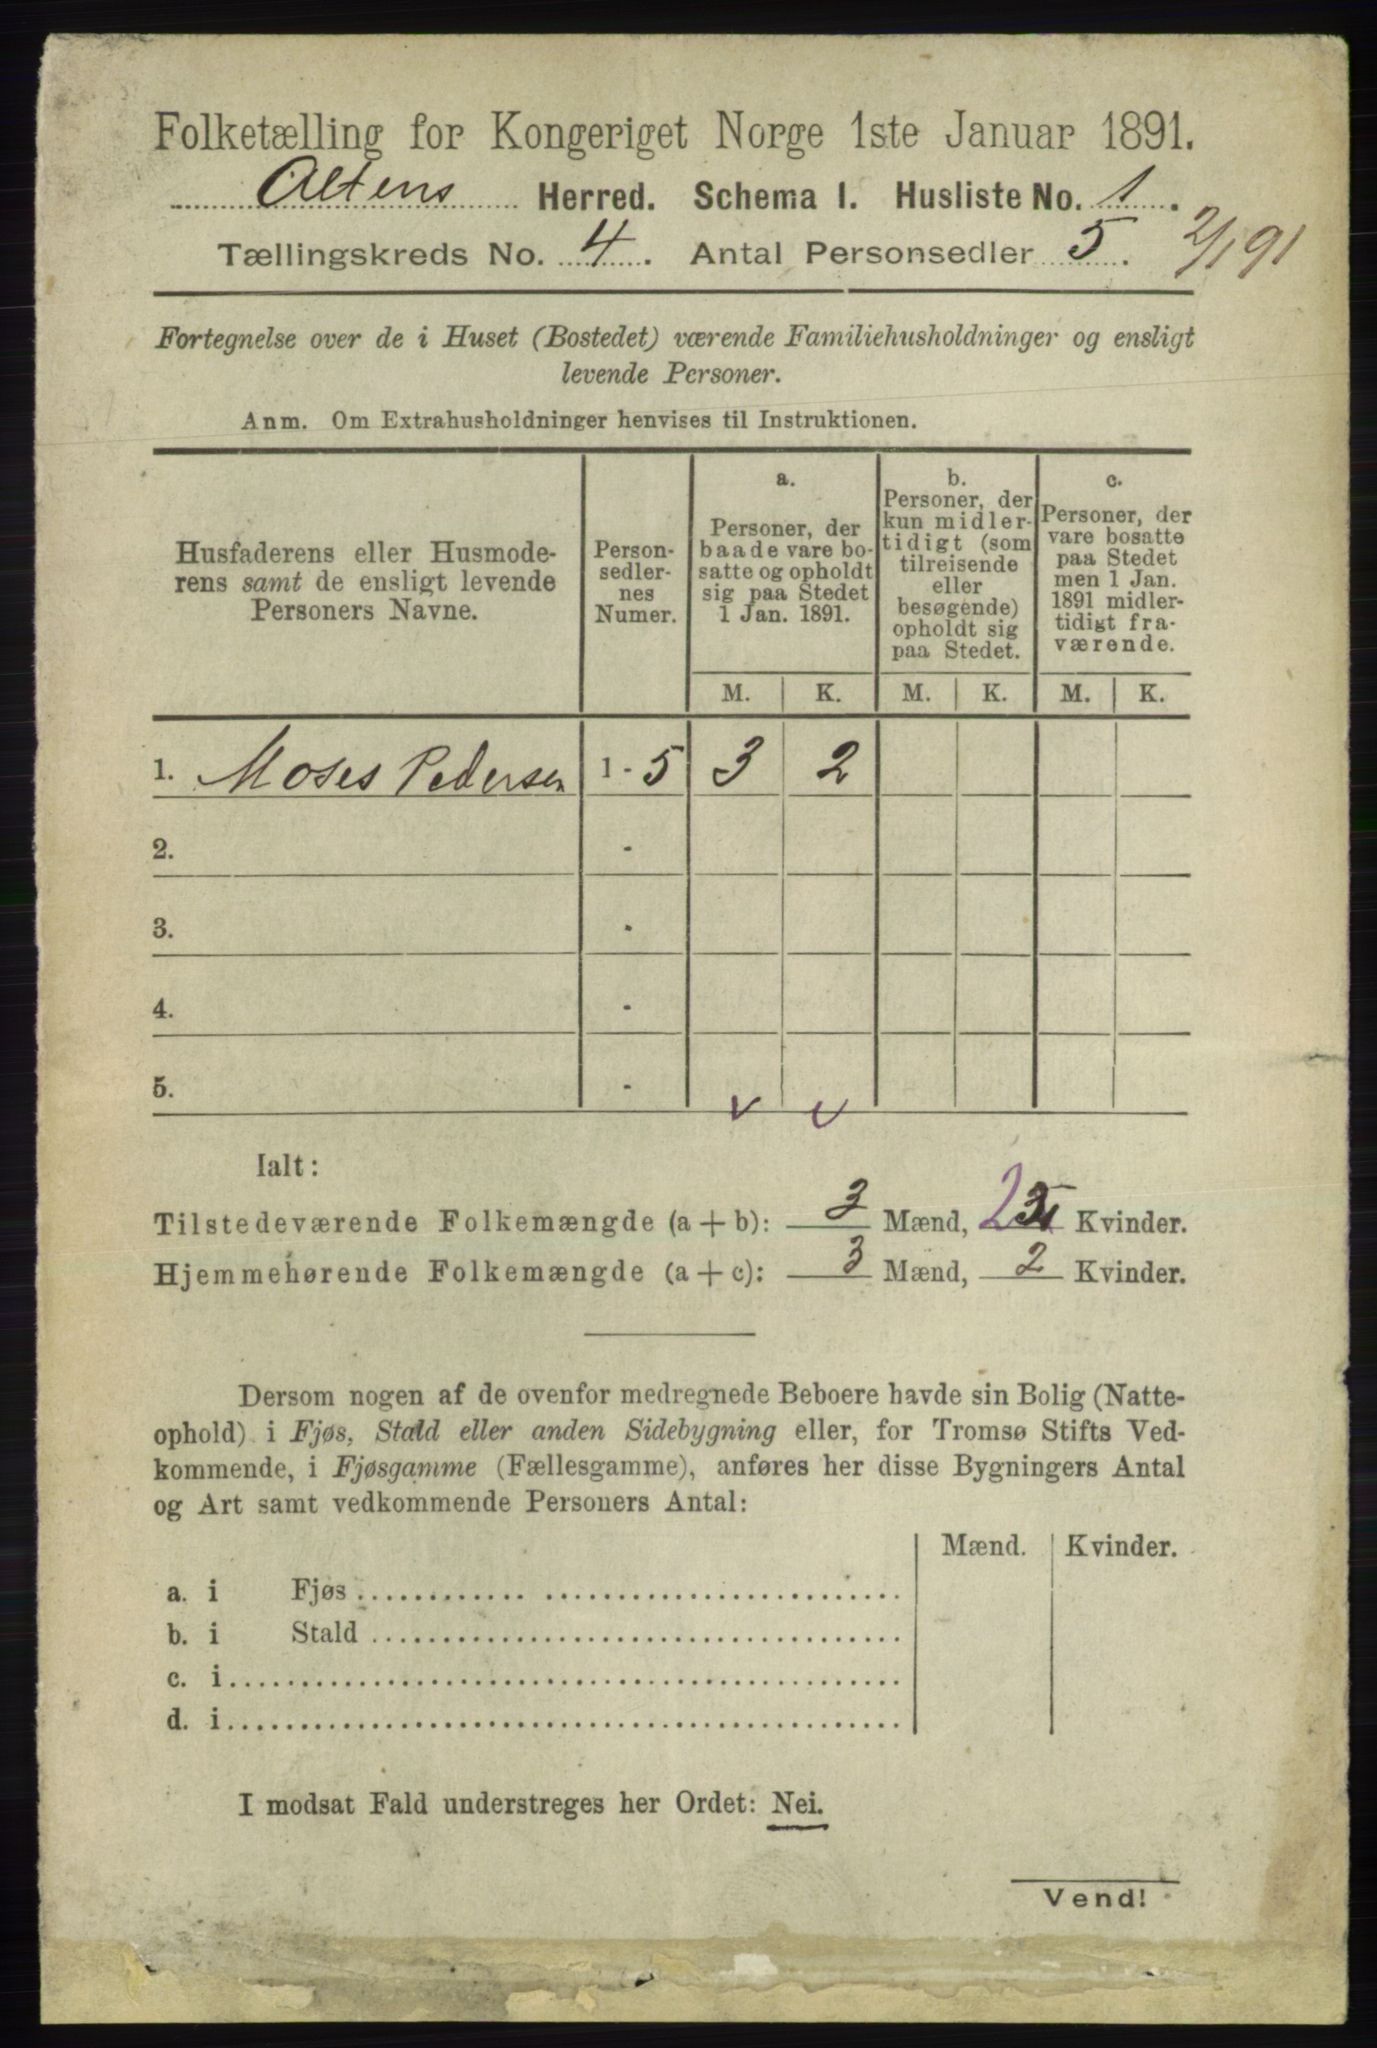 Folketælling for Kongeriget Norge 1ste Januar 1891.
Altens Herred. Schema I. Husliste No. 1.
Tællingskreds No. 4. Antal Personsedler 5. 2/1 91
Fortegnelse over de i Huset (Bostedet) værende Familiehusholdninger og ensligt
levende Personer.
Anm. Om Extrahusholdninger henvises til Instruktionen.
Husfaderens eller Husmode-
rens samt de ensligt levende
Personers Navne.
Person-
sedler-
nes
Numer.
a.
Personer, der
baade vare bo-
satte og opholdt
sig paa Stedet
1 Jan. 1891.
b.
Personer, der
kun midler-
tidigt (som
tilreisende
eller
besøgende)
opholdt sig
paa Stedet.
c.
Personer, der
vare bosatte
paa Stedet
men 1 Jan.
1891 midler-
tidigt fra-
værende.
M. K. M. K. M. K.
1. Moses Pedersen 1 - 5 3 2
2. -
3. -
4. -
5. -
Ialt:
Tilstedeværende Folkemængde (a + b): 3 Mænd, 2 Kvinder.
Hjemmehørende Folkemængde (a + c): 3 Mænd, 2 Kvinder.
Dersom nogen af de ovenfor medregnede Beboere havde sin Bolig (Natte-
ophold) i Fjøs, Stald eller anden Sidebygning eller, for Tromsø Stifts Ved-
kommende, i Fjøsgamme (Fællesgamme), anføres her disse Bygningers Antal
og Art samt vedkommende Personers Antal:
Mænd. Kvinder.
a. i Fjøs
b. i Stald
c. i
d. i
I modsat Fald understreges her Ordet: Nei.
Vend!